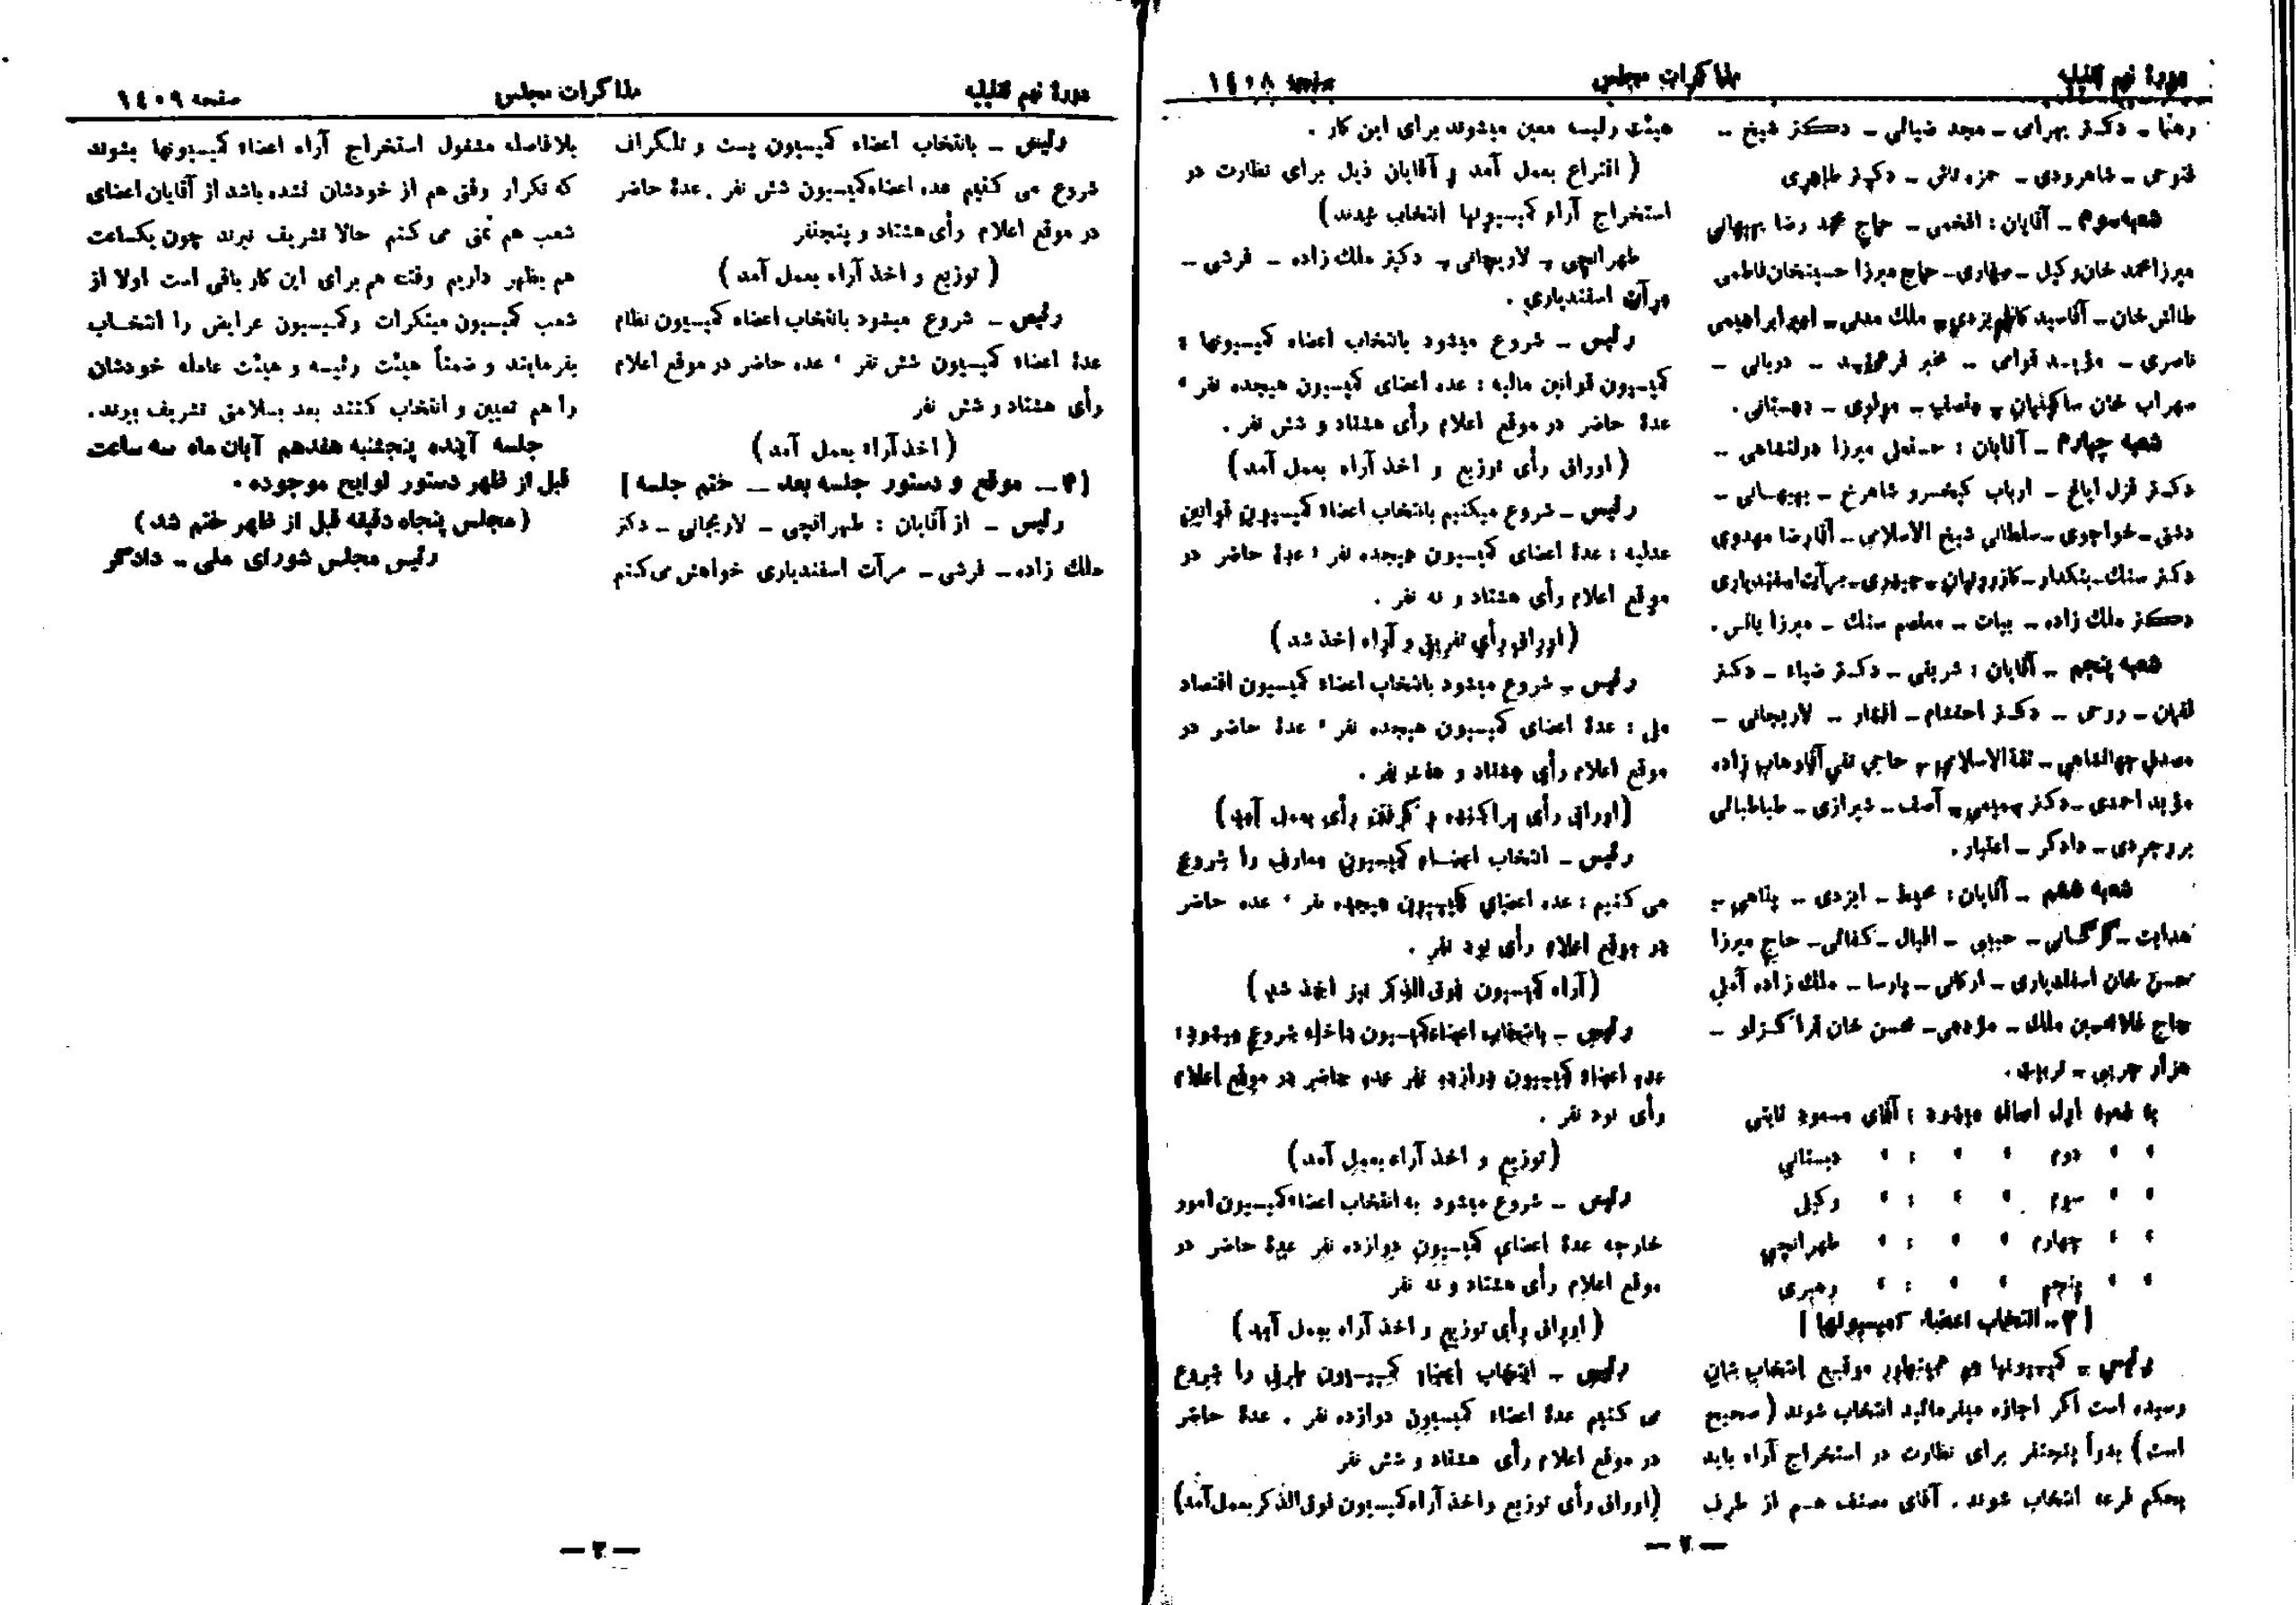 دورهٔ نهم تقنینیه
مذاکرات مجلس
صفحه ۱٤۰۸
رهنما ـ دکتر بهرامی ـ مجد ضیائی ـ دکتر شیخ ـ
فتوحی ـ شاهرودی ـ حمزه تاش ـ دکتر طاهری
شعبه سوم ـ آقایان : افخمی ـ حاج محمد رضا بهبهانی
میرزا محمد خان وکیل ـ حاج میرزا حسینخان فاطمی
طالش خان ـ آقا سید کاظم یزدی ـ ملک مدنی ـ امیر ابراهیمی
ناصری ـ مؤید قوامی ـ مخبر فرهمند ـ دربانی ـ
سهراب خان ساکینیان ـ منصف ـ مولوی ـ دهستانی .
شعبه چهارم ـ آقایان : محمدعلی میرزا دولتشاهی ـ
دکتر قزل ایاغ ـ ارباب کیخسرو شاهرخ ـ بهبهانی ـ
دشتی ـ خواجوی ـ سلطانی شیخ الاسلامی ـ آقا رضا مهدوی
دکتر سنگ ـ بنکدار ـ کازرونیان ـ حیدری ـ مرآت اسفندیاری
دکتر ملک زاده ـ بیات ـ معتصم سنگ ـ میرزا یانس .
شعبه پنجم ـ آقایان : شریفی ـ دکتر ضیاء ـ دکتر
لقمان ـ روحی ـ دکتر احتشام ـ افشار ـ لاریجانی ـ
معدل ـ جهانشاهی ـ ثقة الاسلامی ـ حاجی تقی آقا وهاب زاده
مؤید احمدی ـ دکتر سمیعی ـ آصف ـ شیرازی ـ طباطبائی
بروجردی ـ دادگر ـ اعتبار .
شعبه ششم ـ آقایان : محیط ـ ایزدی ـ پناهی ـ
هدایت ـ گرگانی ـ حبیبی ـ اقبال ـ کفائی ـ حاج میرزا
حسن خان اسفندیاری ـ ارکانی ـ پارسا ـ ملک زاده آملی
حاج غلامحسین ملک ـ مؤدهی ـ محسن خان قراگزلو ـ
هزار جریبی ـ تربیت .
به شعبه اول اضافه میشود : آقای مسعود ثابتی
» » دوم » » : » دبستانی
» » سوم » » : » وکیل
» » چهارم » » : » طهرانچی
» » پنجم » » : » رهبری
[ ۳ ـ انتخاب اعضاء کمیسیونها ]
رئیس ـ کمیسیونها هم همینطور موقع انتخاب شان
رسیده است اگر اجازه میفرمائید انتخاب شوند ( صحیح
است ) بدواً پنجنفر برای نظارت در استخراج آراء باید
بحکم قرعه انتخاب شوند . آقای مصنف هم از طرف
هیئت رئیسه معین میشوند برای این کار .
( اقتراع بعمل آمد و آقایان ذیل برای نظارت در
استخراج آراء کمیسیونها انتخاب شدند )
طهرانچی ـ لاریجانی ـ دکتر ملک زاده ـ فرشی ـ
مرآت اسفندیاری .
رئیس ـ شروع میشود بانتخاب اعضاء کمیسیونها :
کمیسیون قوانین مالیه : عده اعضای کمیسیون هیجده نفر ،
عدهٔ حاضر در موقع اعلام رأی هشتاد و شش نفر .
( اوراق رأی توزیع و اخذ آراء بعمل آمد )
رئیس ـ شروع میکنیم بانتخاب اعضاء کمیسیون قوانین
عدلیه : عدهٔ اعضای کمیسیون هیجده نفر ، عدهٔ حاضر در
موقع اعلام رأی هشتاد و نه نفر .
( اوراق رأی تفریق و آراء اخذ شد )
رئیس ـ شروع میشود بانتخاب اعضاء کمیسیون اقتصاد
ملی : عدهٔ اعضای کمیسیون هیجده نفر ، عدهٔ حاضر در
موقع اعلام رأی هشتاد و هشت نفر .
( اوراق رأی پراکنده و گرفتن رأی بعمل آمد )
رئیس ـ انتخاب اعضاء کمیسیون معارف را شروع
می کنیم : عده اعضای کمیسیون هیجده نفر ، عده حاضر
در موقع اعلام رأی نود نفر .
( آراء کمیسیون فوق الذکر نیز اخذ شد )
رئیس ـ بانتخاب اعضاء کمیسیون داخله شروع میشود :
عده اعضاء کمیسیون دوازده نفر عده حاضر در موقع اعلام
رأی نود نفر .
( توزیع و اخذ آراء بعمل آمد )
رئیس ـ شروع میشود به انتخاب اعضاء کمیسیون امور
خارجه عدهٔ اعضای کمیسیون دوازده نفر عدهٔ حاضر در
موقع اعلام رأی هشتاد و نه نفر
( اوراق رأی توزیع و اخذ آراء بعمل آمد )
رئیس ـ انتخاب اعضاء کمیسیون طرق را شروع
می کنیم عدهٔ اعضاء کمیسیون دوازده نفر . عدهٔ حاضر
در موقع اعلام رأی هشتاد و شش نفر
( اوراق رأی توزیع و اخذ آراء کمیسیون فوق الذکر بعمل آمد )
— ۲ —
دورهٔ نهم تقنینیه
مذاکرات مجلس
صفحه ۱٤۰۹
رئیس ـ بانتخاب اعضاء کمیسیون پست و تلگراف
شروع می کنیم عده اعضاء کمیسیون شش نفر . عدهٔ حاضر
در موقع اعلام رأی هشتاد و پنجنفر
( توزیع و اخذ آراء بعمل آمد )
رئیس ـ شروع میشود بانتخاب اعضاء کمیسیون نظام
عدهٔ اعضاء کمیسیون شش نفر ، عده حاضر در موقع اعلام
رأی هشتاد و شش نفر
( اخذ آراء بعمل آمد )
[ ۴ ـ موقع و دستور جلسه بعد ـ ختم جلسه ]
رئیس ـ از آقایان : طهرانچی ـ لاریجانی ـ دکتر
ملک زاده ـ فرشی ـ مرآت اسفندیاری خواهش می کنم
بلافاصله مشغول استخراج آراء اعضاء کمیسیونها بشوند
که تکرار وقتی هم از خودشان نشده باشد از آقایان اعضای
شعب هم تمنی می کنم حالا تشریف نبرند چون یکساعت
هم بظهر داریم وقت هم برای این کار باقی است اولا از
شعب کمیسیون مبتکرات و کمیسیون عرایض را انتخاب
بفرمایند و ضمناً هیئت رئیسه و هیئت عامله خودشان
را هم تعیین و انتخاب کنند بعد بسلامتی تشریف ببرند .
جلسه آینده پنجشنبه هفدهم آبان ماه سه ساعت
قبل از ظهر دستور لوایح موجوده .
( مجلس پنجاه دقیقه قبل از ظهر ختم شد )
رئیس مجلس شورای ملی ـ دادگر
— ۳ —